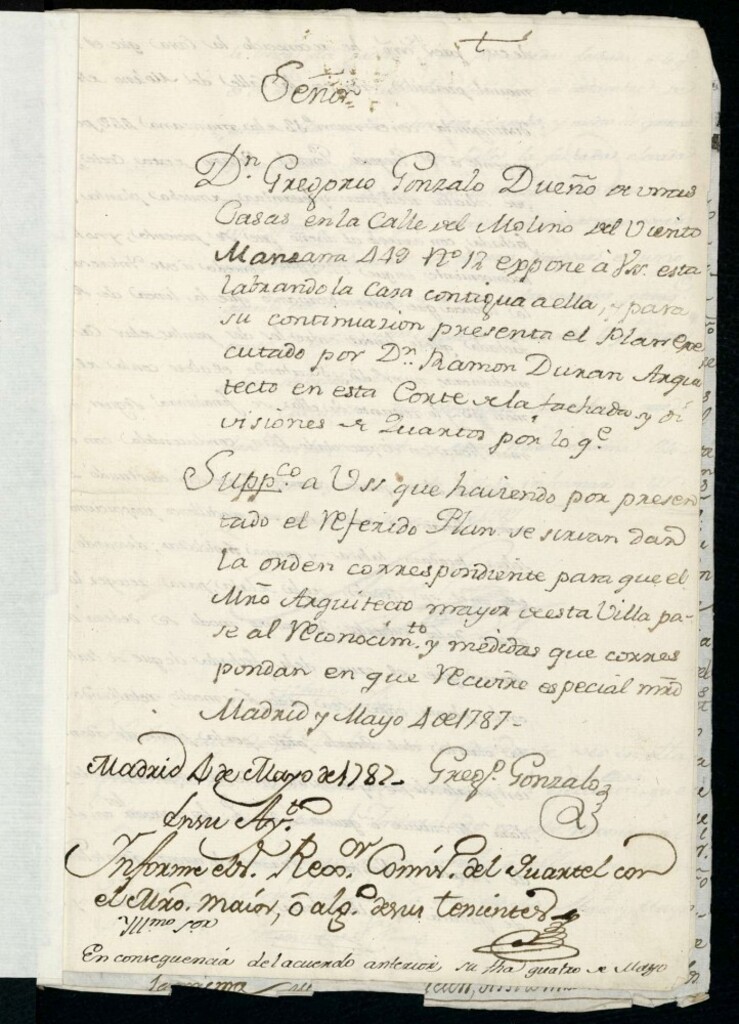 t
Señor
Dn Gregorio Gonzalo Dueño de unas
Casas en la Calle del Molino del Viento
Manzana 449 Nº 12 expone à Vss. esta
labrando la Casa contigua a ella, y para
su continuazion presenta el Plan exe
cutado por Dn. Ramon Duran Arqui
tecto en esta Corte de la fachada y di
visiones de Quartos por lo qe
Suppco. a Vss que haviendo por presen
tado el Referido Plan se sirvan dar
la orden correspondiente para que el
Mrô Arquitecto mayor de esta Villa pa-
se al Reconocimto. y medidas que corres
pondan en que Recivire especial mrd
Madrid y Mayo 4 de 1787-
Madrid 4 de Mayo de 1787- Gregº. Gonzalo
En su Ayto.
Informe el Sr. Rexor Comisº. del Quartel con
el Mrô. maior, ô algº. de sus tenientes
Yllmo Sor
En consequencia del acuerdo anterior, su fha quatro de Mayo